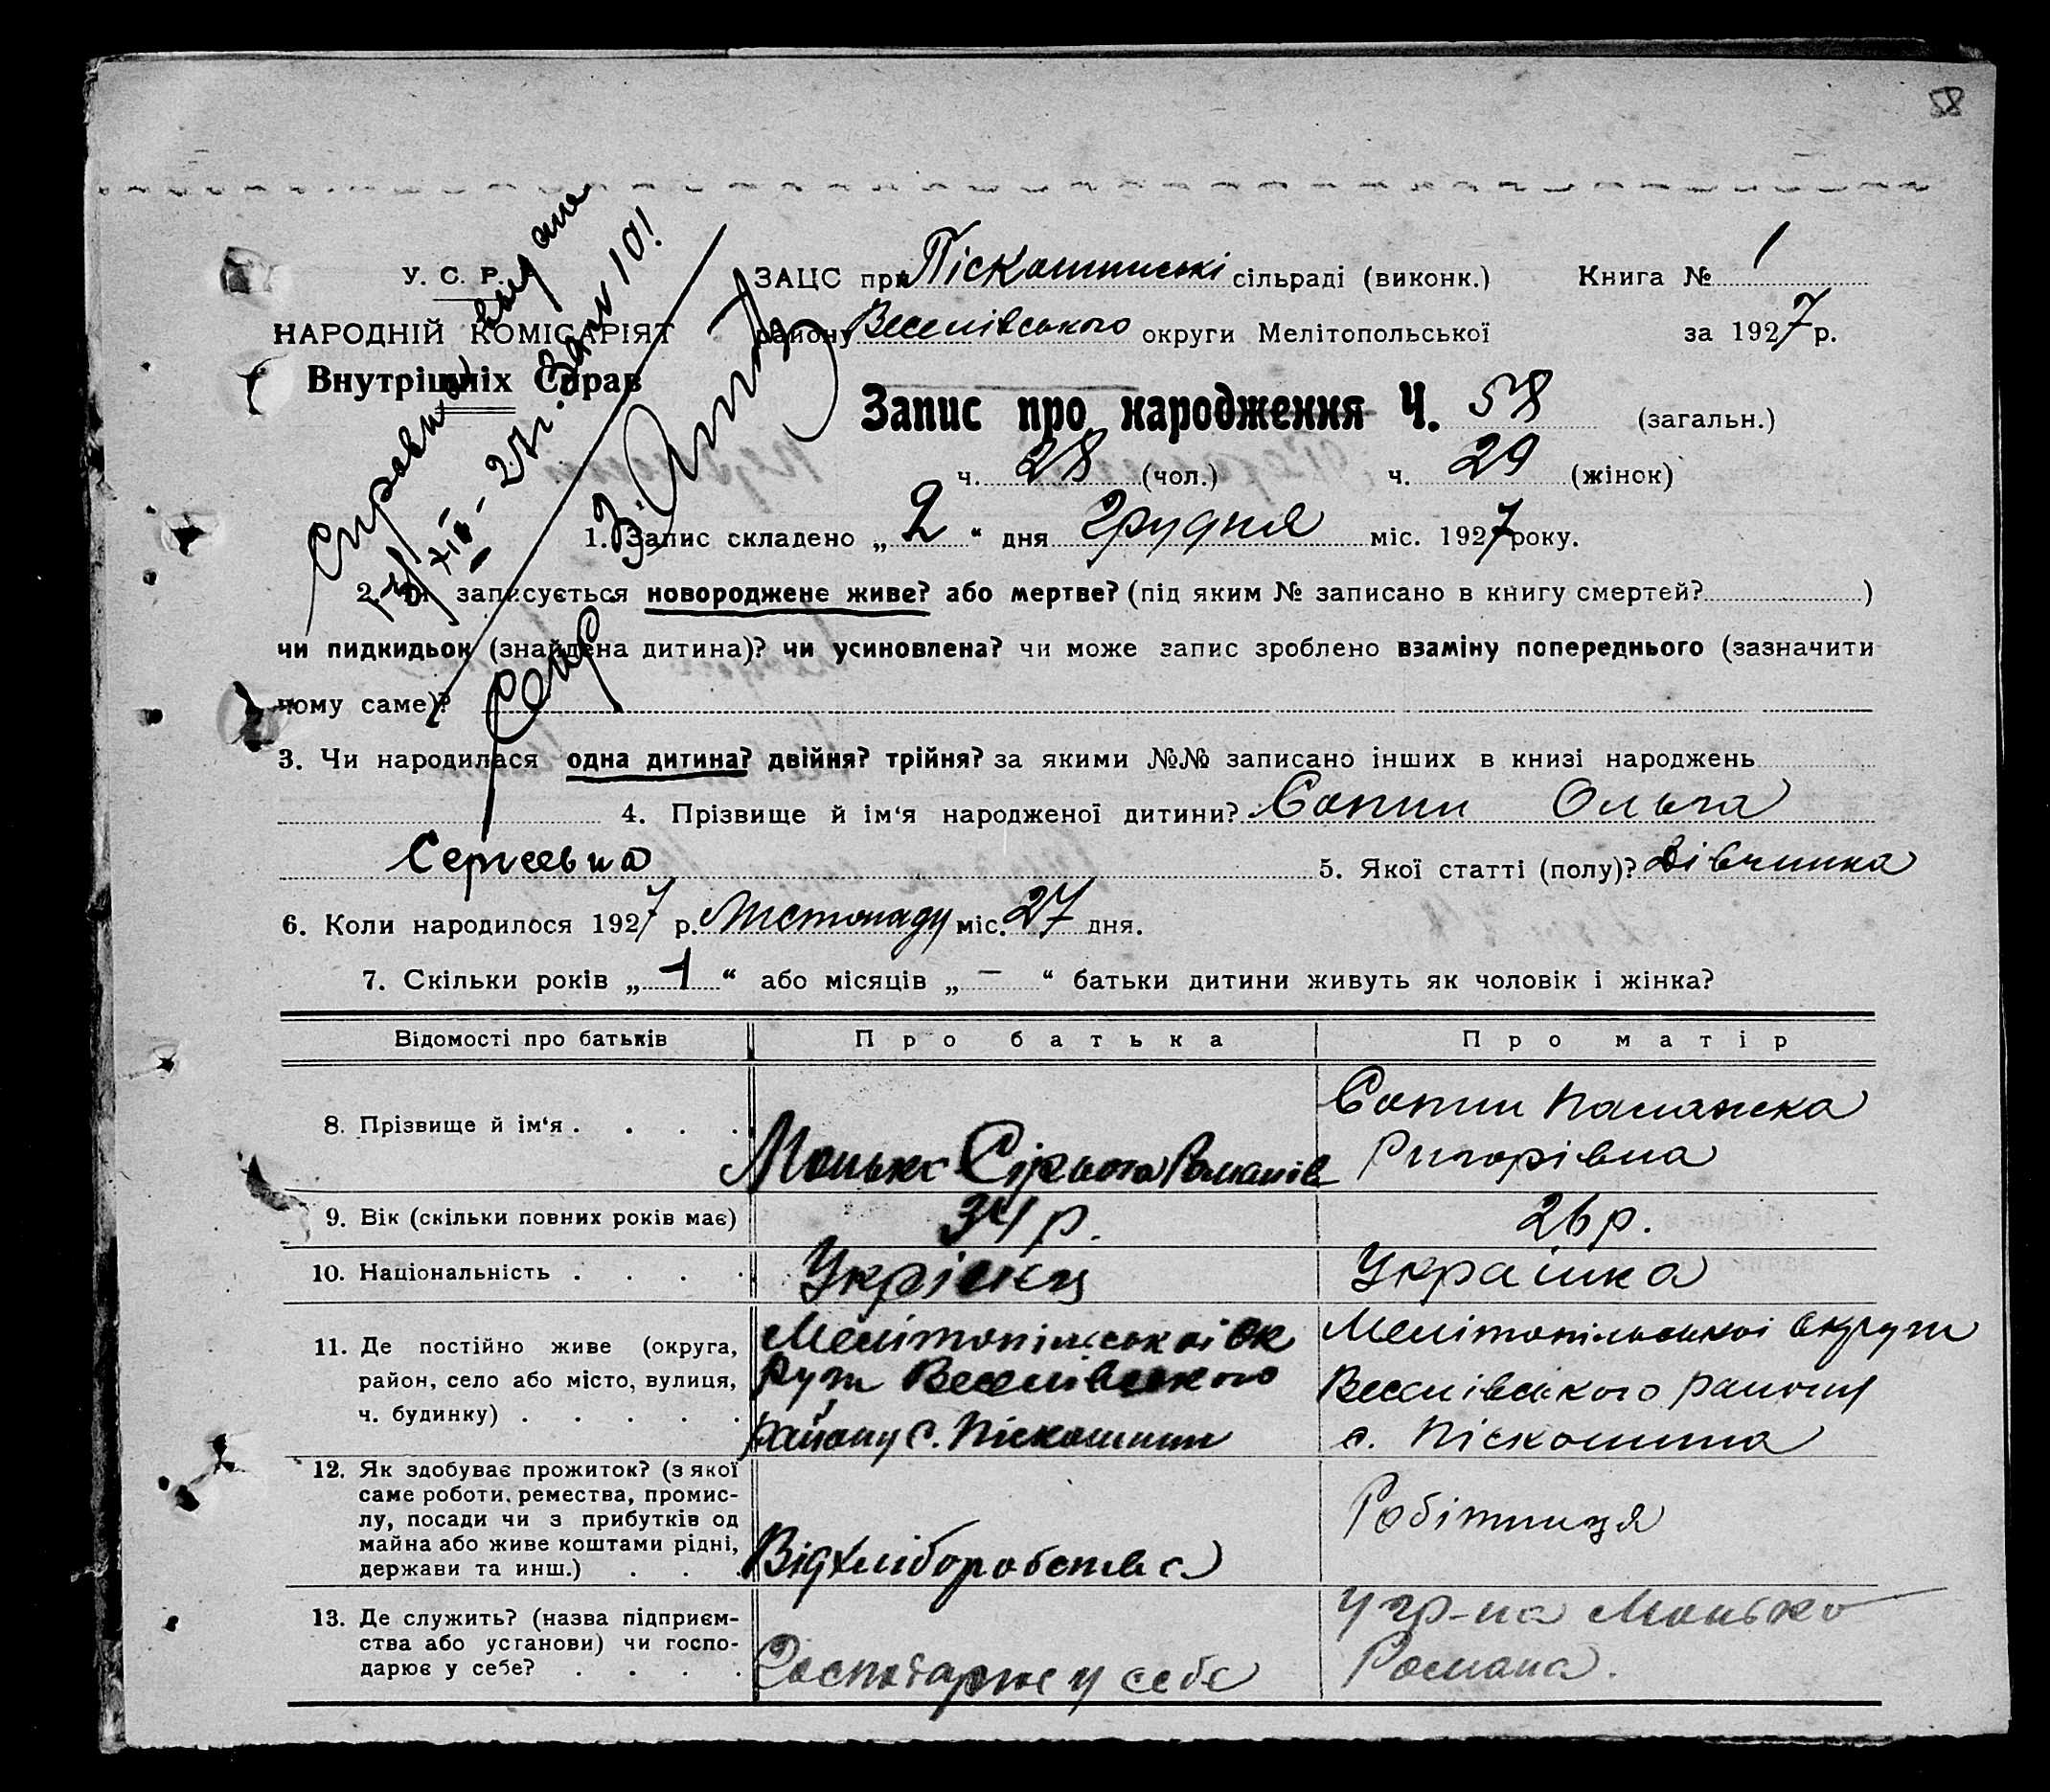 58
У. С. Р. Р.
НАРОДНІЙ КОМІСАРІЯТ
Внутрішніх Справ
ЗАЦС при Піскошинські сільраді (виконк.) Книга № 1
району Веселівського округи Мелітопольської за 1927 р.
Запис про народження Ч. 58 (загальн.)
ч. 28 (чол.) ч. 29 (жінок)
1. Запис складено „ 2 “ дня Грудня міс. 1927 року.
2. записується новороджене живе? або мертве? (під яким № записано в книгу смертей? )
чи пидкидьок (знайдена дитина)? чи усиновлена? чи може запис зроблено взаміну попереднього (зазначити
чому саме)?
3. Чи народилася одна дитина? двійня? трійня? за якими №№ записано інших в книзі народжень
4. Прізвище й ім‘я народженої дитини? Ольга
Сергеевна 5. Якої статті (полу)? дівчинка
6. Коли народилося 1927 р. Листопаду міс. 27 дня.
7. Скільки років „ 1 “ або місяців „ — “ батьки дитини живуть як чоловік і жінка?
Відомості про батьків Про батька Про матір
8. Прізвище й ім‘я . . . .
Ригорівна
9. Вік (скільки повних років має) 34 р. 26 р.
10. Національність . . . .
11. Де постійно живе (округа, Мелітопільськоі Ок Мелітопільськоі округи
район, село або місто, вулиця, руги Веселівського Веселівського району
ч. будинку) . . . . . району с. Піскошини с. Піскошина
12. Як здобуває прожиток? (з якої
саме роботи, ремества, промис-
лу, посади чи з прибутків од Робітниця
майна або живе коштами рідні, Від хліборобства
держави та инш.) . . .
13. Де служить? (назва підприєм- У гр-на Монько
ства або установи) чи госпо- Романа.
дарює у себе? . . . . Господарює у себе